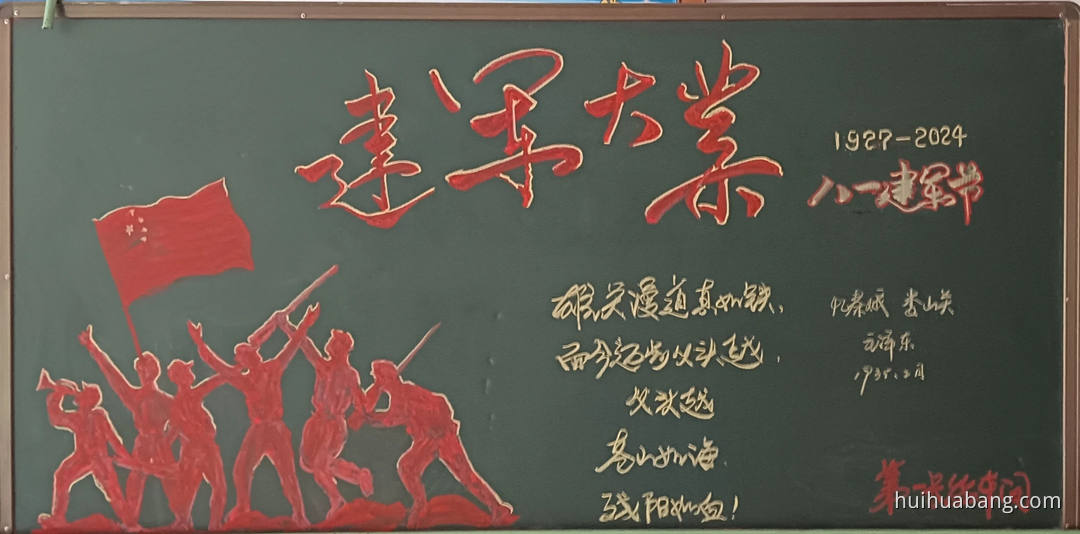 建军大业
1927-2024
八一建军节
雄关漫道真如铁,
而今迈步从头越,
从头越
苍山如海,
残阳如血!
忆秦娥 娄山关
毛泽东
1935.2月
第一车间
huihuabang.com